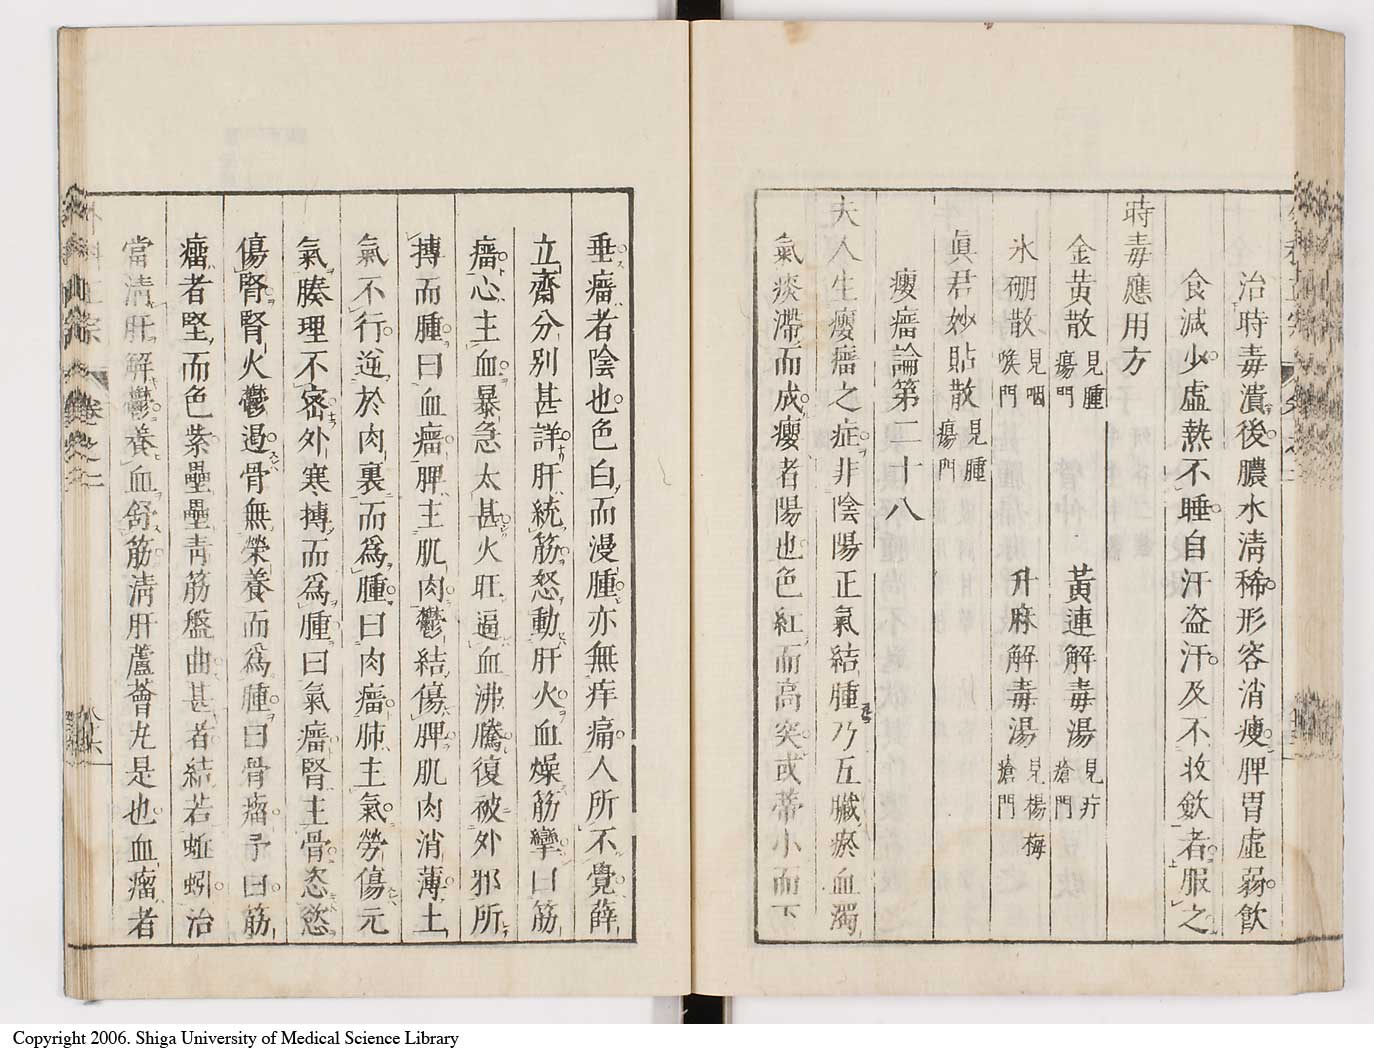 治時毒潰後膿水清稀形容消瘦脾胃虛弱飲
食減少虛熱不睡自汗盜汗及不收斂者服之
時毒應用方
金黃散見腫瘍門 黃連解毒湯見疔瘡門
氷硼散見咽喉門 升麻解毒湯見楊梅瘡門
眞君妙貼散見腫瘍門
瘿瘤論第二十八
夫人生瘿瘤之症非陰陽正氣結腫乃五臟瘀血濁
氣痰滯而成瘿者陽也色紅而高突或蒂小而下
垂瘤者陰也色白而漫腫亦無痒痛人所不覺薛
立齋分別甚詳肝統筋怒動肝火血燥筋攣曰筋
瘤心主血暴急太甚火旺逼血沸騰復被外邪所
搏而腫曰血瘤脾主肌肉鬱結傷脾肌肉消薄土
氣不行逆於肉裏而爲腫曰肉瘤肺主氣勞傷元
氣腠理不密外寒搏而爲腫曰氣瘤腎主骨恣慾
傷腎腎火鬱遏骨無榮養而爲腫曰骨瘤予曰筋
瘤者堅而色紫壘壘青筋盤曲甚者結若蚯蚓治
當清肝解鬱養血舒筋清肝蘆薈丸是也血瘤者
外科正宗 卷之二 八六
Copyright 2006. Shiga University of Medical Science Library